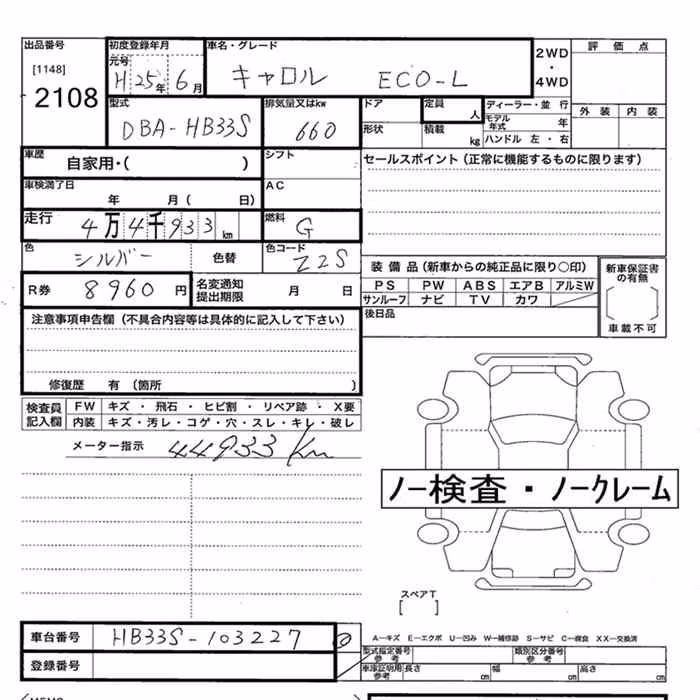 出品番号 初度登録年月 車名・グレード 2WD ・ 4WD 評価点
[1148] 元号 H 25年 6月 キャロル ECO-L
2108 型式 排気量又はkw ドア 定員 人 ディーラー・並 行 外装 内装
DBA-HB33S 660 形状 積載 kg モデル年式 年
ハンドル 左・右
車歴 自家用・( ) シフト セールスポイント(正常に機能するものに限ります)
車検満了日 年 月( 日) AC
走行 4万4千933km 燃料 G
色 シルバー 色替 色コード Z2S 装備品(新車からの純正品に限り○印) 新車保証書の有無
R券 8960円 名変通知提出期限 月 日 PS PW ABS エアB アルミW [ ]
サンルーフ ナビ TV カワ
後日品 車載不可
注意事項申告欄(不具合内容等は具体的に記入して下さい)
修復歴 有(箇所 )
検査員記入欄 FW キズ・飛石・ヒビ割・リペア跡・X要
内装 キズ・汚レ・コゲ・穴・スレ・キレ・破レ
メーター指示 44933 Km
ノー検査・ノークレーム
スペアT
[ ]
車台番号 HB33S-103227 A-キズ E-エクボ U-凹み W-補修跡 S-サビ C-腐食 XX-交換済
型式指定番号 参考 類別区分番号 参考
登録番号 車庫証明用 参考 長さ cm 幅 cm 高さ cm